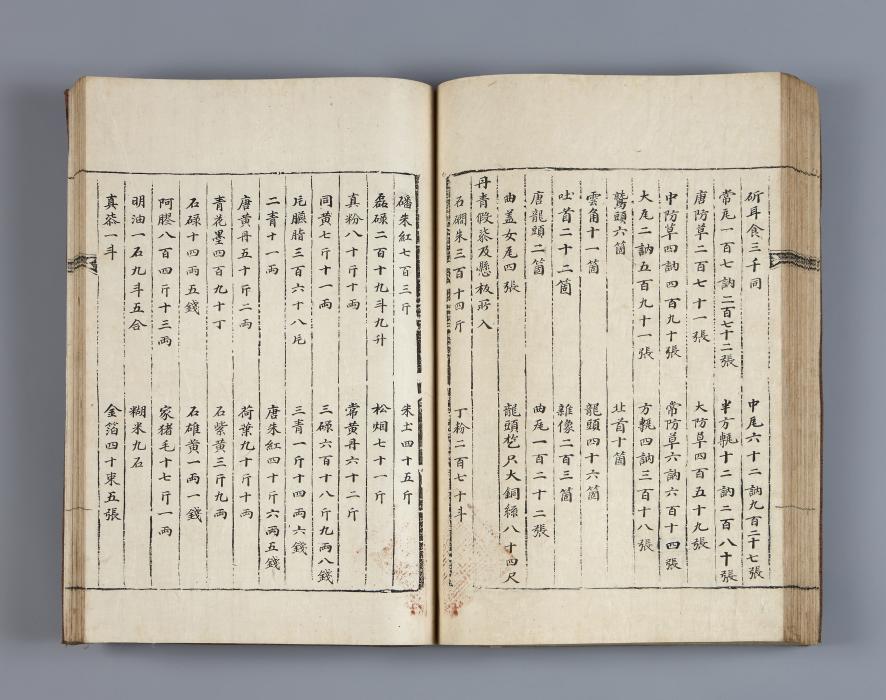 斫耳食三千同 中瓦六十二訥九百二十七張
常瓦一百七訥二百七十二張 半方甎十二訥二百八十張
唐防草二百七十一張 大防草四百五十九張
中防草四訥四百九十張 常防草六訥六百十四張
大瓦二訥五百九十一張 方甎四訥三百十八張
鷲頭六箇 北首十箇
雲角十一箇 龍頭四十六箇
吐首二十二箇 雜像二百三箇
唐龍頭二箇 曲瓦一百二十二張
曲盖女瓦四張 龍頭乼只大銅絲八十四尺
丹青假㓒及懸板所入
石磵朱三百十四斤 丁粉二百七十斗
磻朱紅七百三斤 朱土四十五斤
磊碌二百十九斗九升 松烟七十一斤
真粉八十斤十兩 常黃丹六十二斤
同黃七斤十一兩 三碌六百十八斤九兩八錢
片臙脂三百六十八片 三青一斤十四兩六錢
二青十一兩 唐朱紅四十斤六兩五錢
唐黃丹五十斤二兩 荷葉九十斤十兩
青花墨四百九十丁 石紫黃三斤九兩
石碌十四兩五錢 石雄黃一兩一錢
阿膠八百四斤十三兩 家猪毛十七斤一兩
明油一石九斗五合 糊米九石
真㓒一斗 金箔四十束五張